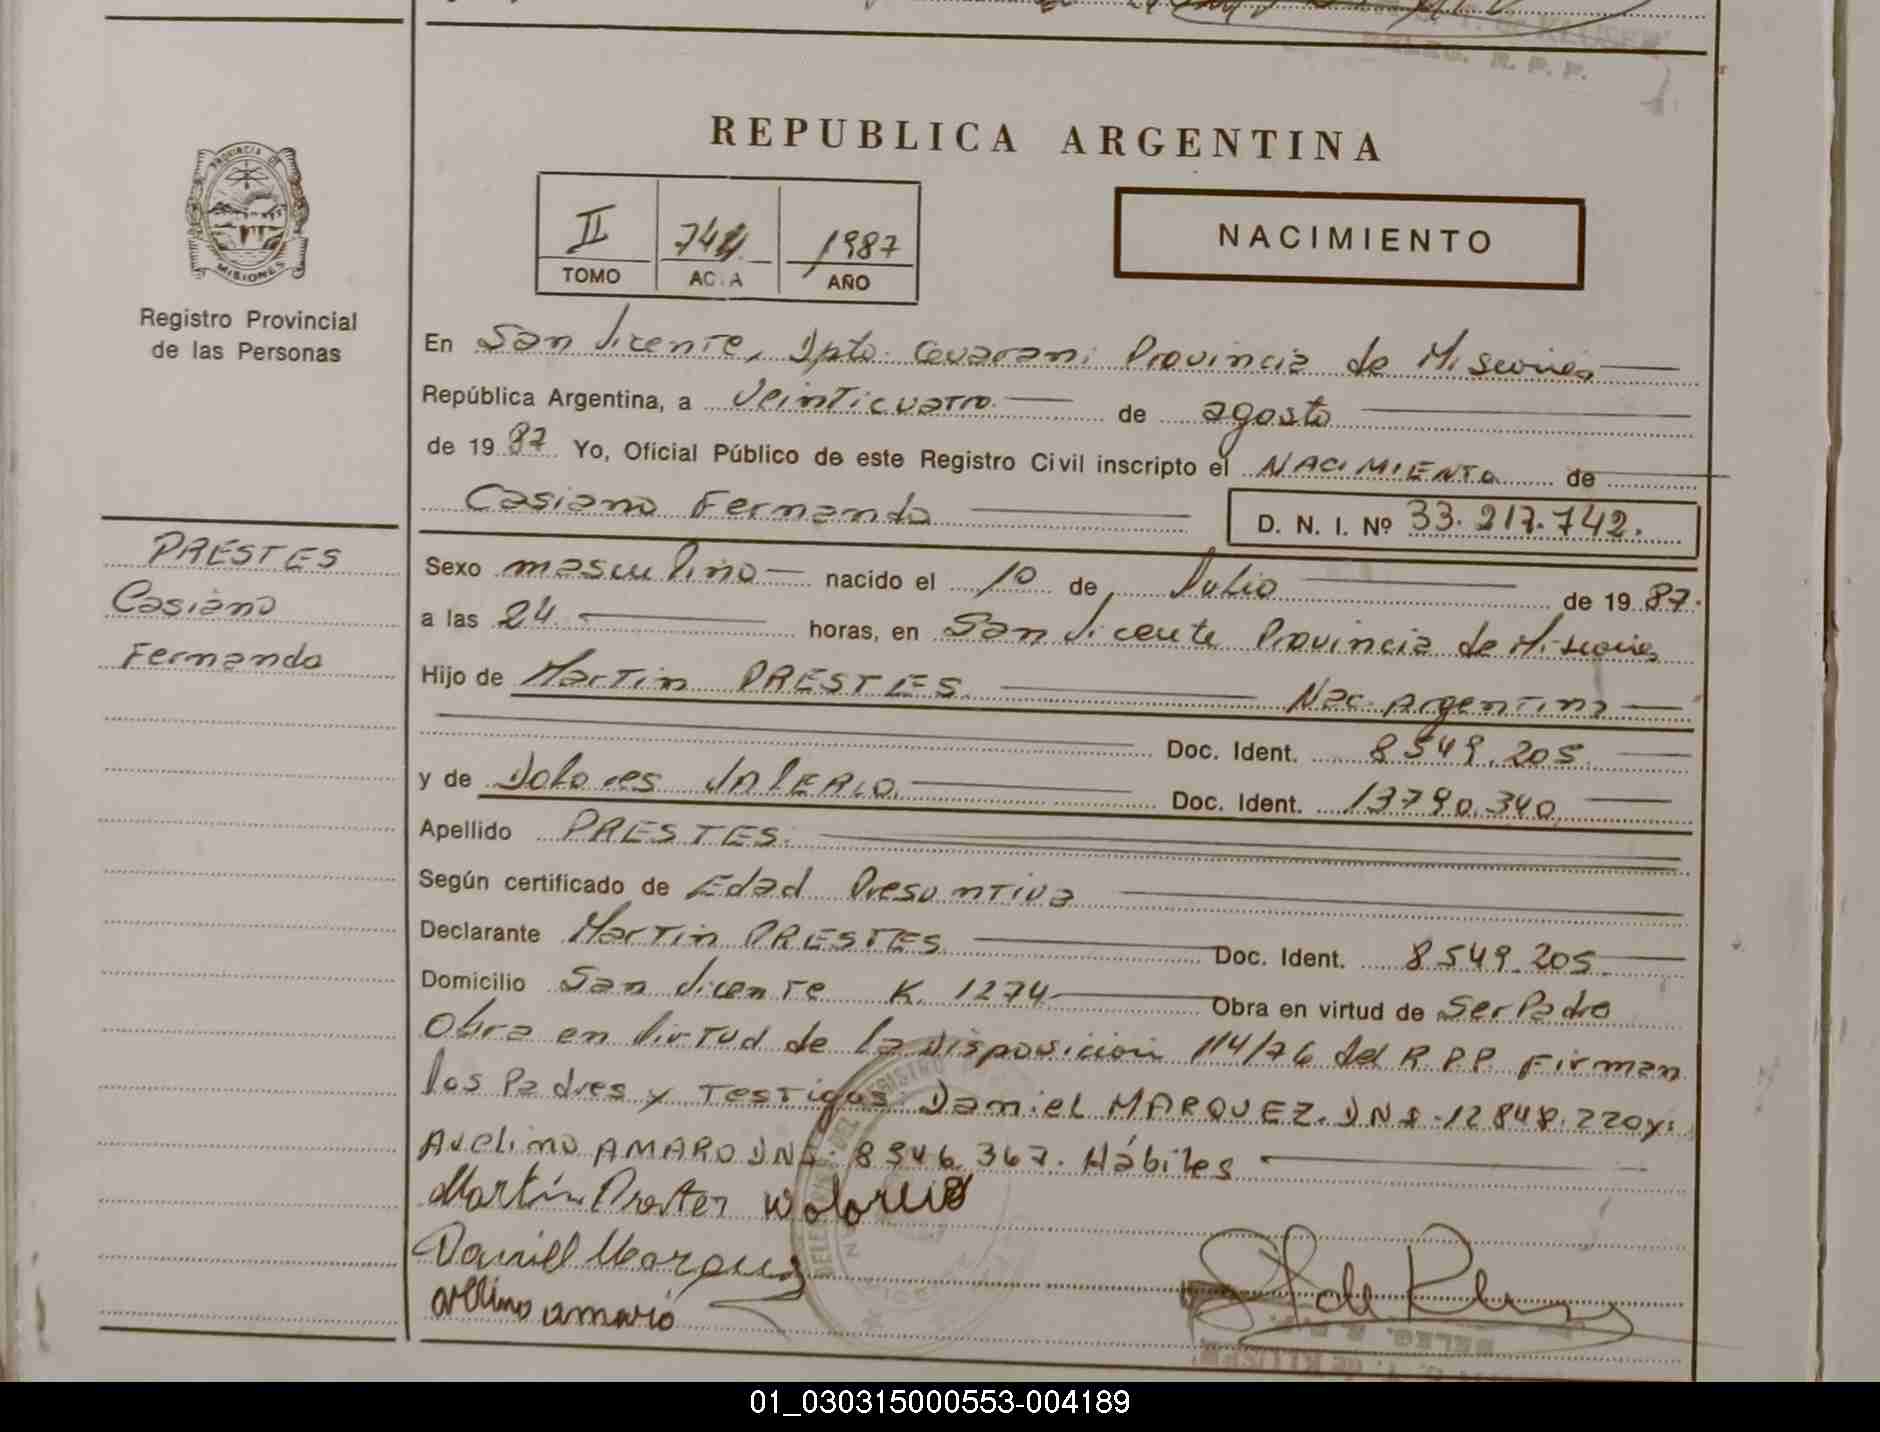 DELEG. R. P. P.
REPUBLICA ARGENTINA
II
TOMO
AC.A
1987
AÑO
NACIMIENTO
PROVINCIA DE
MISIONES
Registro Provincial
de las Personas
PRESTES
Casiano
Fernando
En San Vicente, Dpto. Guarani Provincia de Misiones
República Argentina, a Veinticuatro de agosto
de 1987 Yo, Oficial Público de este Registro Civil inscripto el NACIMIENTO de
Casiano Fernando D. N. I. Nº 33.217.742.
Sexo masculino nacido el 10 de Julio de 1987.
a las 24 horas, en San Vicente Provincia de Misiones
Hijo de Martin PRESTES Nac. Argentina
Doc. Ident. 8549.205
y de Dolores VALERIO. Doc. Ident. 13790.340
Apellido PRESTES.
Según certificado de Edad Presuntiva
Declarante Martin PRESTES Doc. Ident. 8549.205
Domicilio San Vicente K. 1274 Obra en virtud de Ser Padre
Obra en Virtud de la Disposicion 114/76 del R.P.P. Firman
los Padres y Testigos: Daniel MARQUEZ. DNI. 12848.220 y:
Avelino AMARO DNI. 8546.367. Hábiles
Martín Prester
Daniel Marquez
avelino amaro
01_030315000553-004189